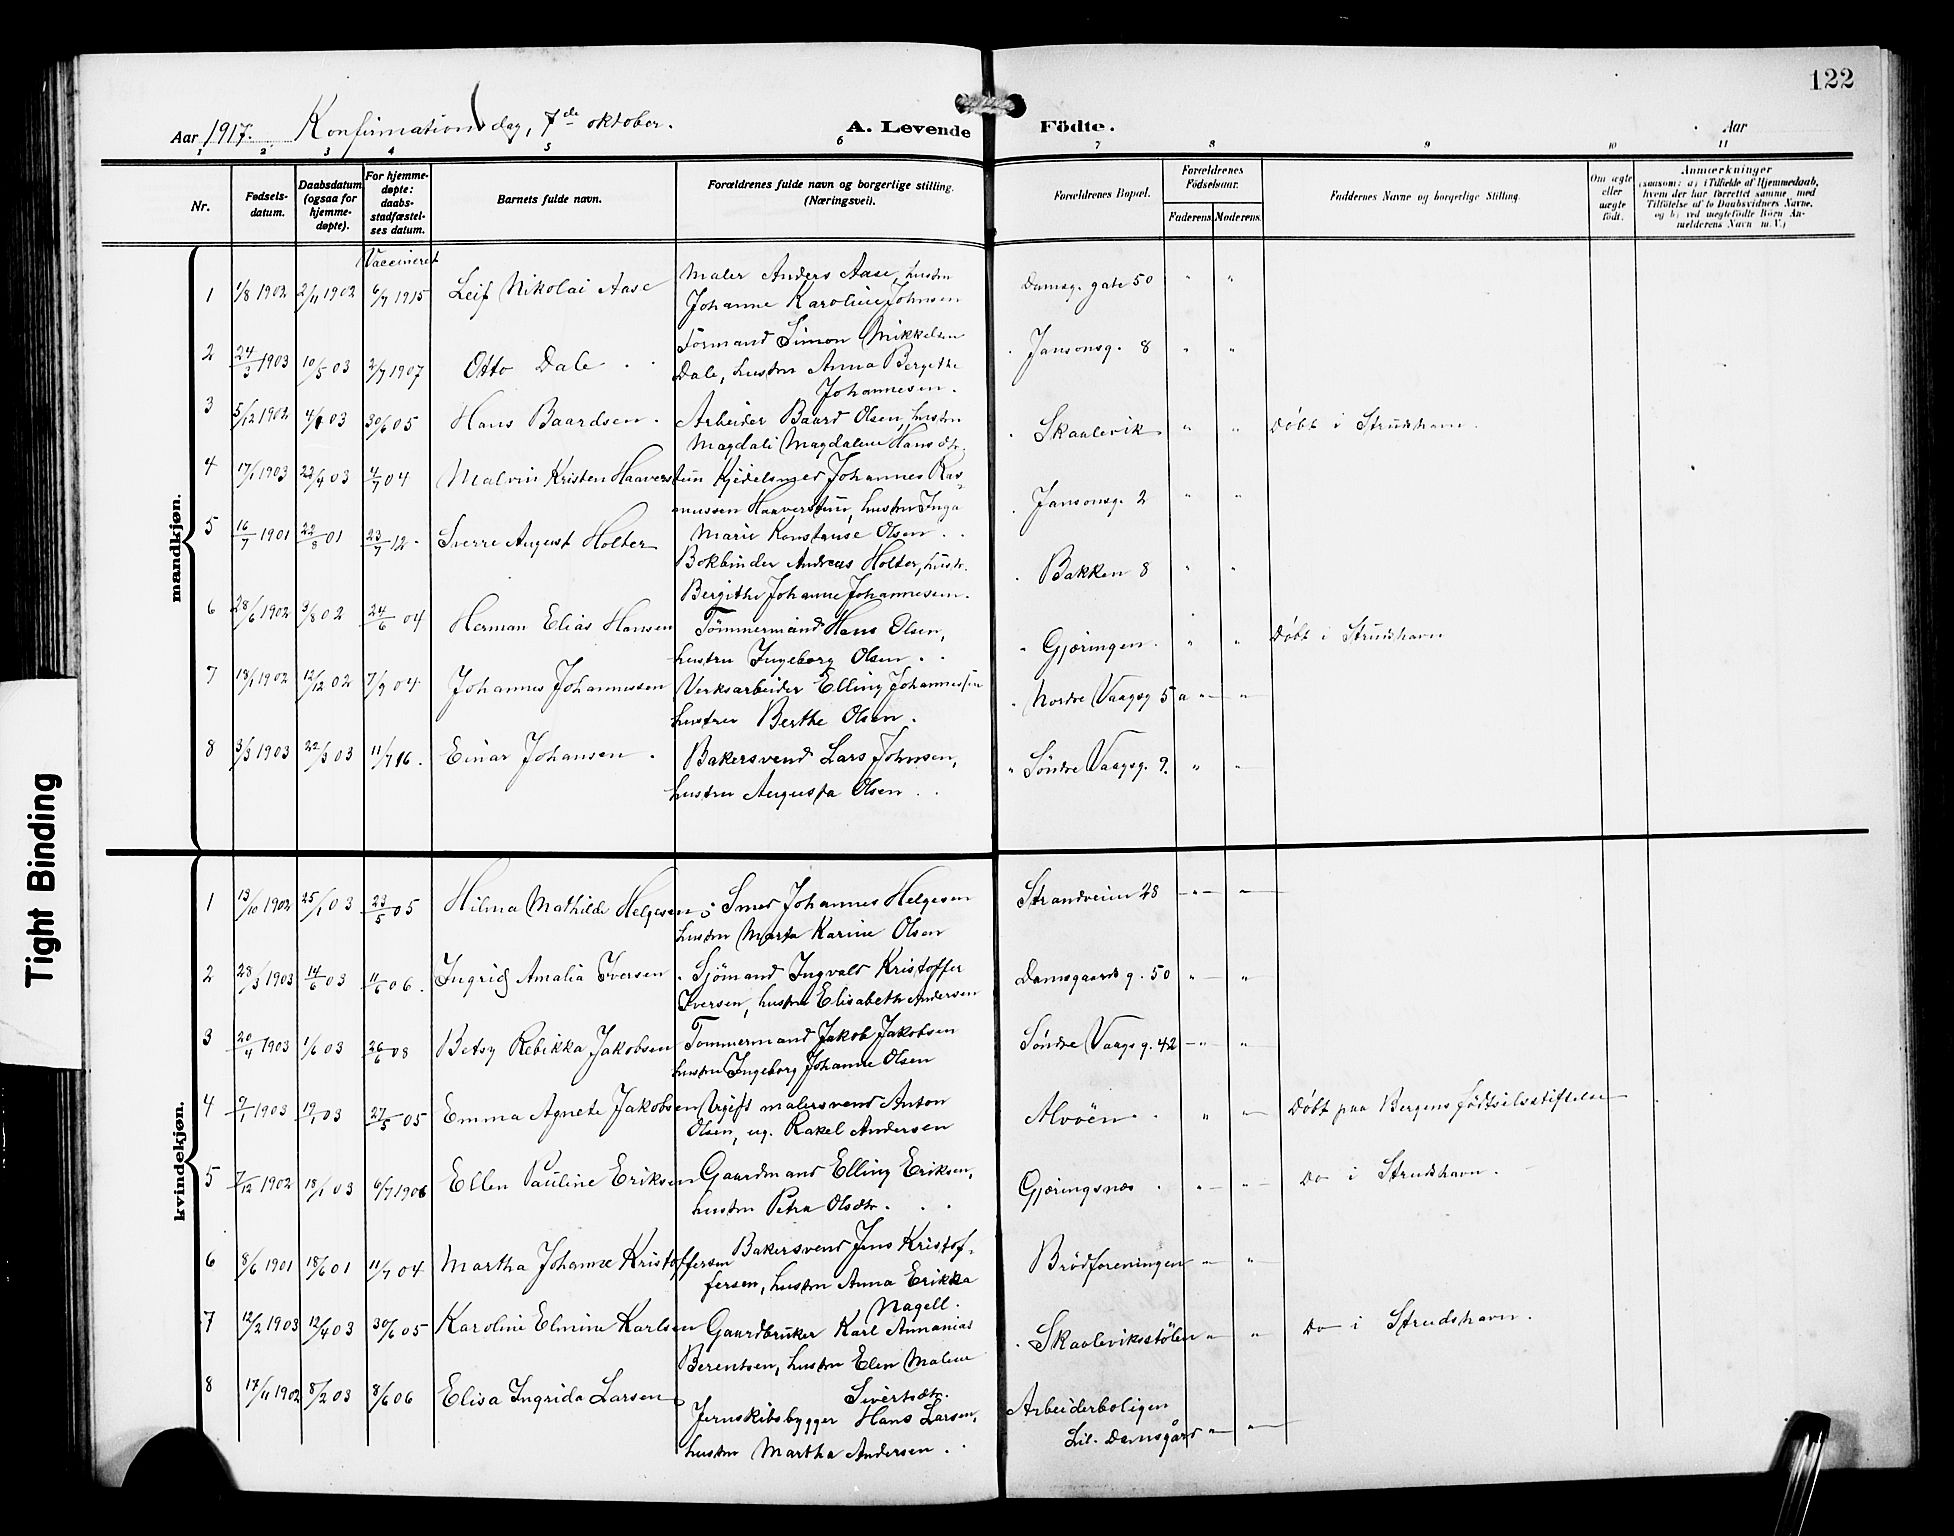 122
Aar 1917. Konfirmationsdag, 7de oktober. A. Levende Födte. Aar
1 2. 3 4 5 6 7 8 9 10 11
Nr.
Fødsels-
datum.
Daabsdatum
(ogsaa for
hjemme-
døpte).
For hjemme-
døpte:
daabs-
stadfæstel-
ses datum.
Barnets fulde navn.
Forældrenes fulde navn og borgerlige stilling.
(Næringsvei).
Forældrenes Bopæl.
Forældrenes
Födselsaar.
Faderens. Moderens.
Faddernes Navne og borgerlige Stilling.
Om ægte
eller
uægte
födt.
Anmærkninger
(saasom: a) i Tilfælde af Hjemmedaab,
hvem der har forrettet samme, med
Tilföielse af to Daabsvidners Navne,
og b) ved uægtefödte Börn An-
melderens Navn m. V.)
Vaccineret
mandkjøn.
1 1/8 1902 2/11 1902 6/7 1915 Leif Nikolai Aase Maler Anders Aase, hustru Damsg. gate 50 " "
Johanne Karoline Johnsen
2 24/3 1903 10/5 03 2/7 1907 Otto Dale Formand Simon Mikkelsen Jansonsg. 8 " "
Dale, hustru Anna Bergithe
Johannesen.
3 5/12 1902 4/1 03 30/6 05 Hans Baardsen. Arbeider Baard Olsen, hustru Skaalevik " " Døbt i Strudshavn.
Magdali Magdalene Hansdtr.
4 17/1 1903 23/4 03 4/7 04 Malvin Kristen Haaverstun Kjedelsmed Johannes Ras- Jansonsg. 2 " "
mussen Haaverstun, hustru Inga
Marie Konstanse Olsen
5 16/7 1901 22/8 01 23/7 12. Sverre August Holter Bokbinder Andreas Holter, hustr. Bakken 8 " "
Bergithe Johanne Johannesen.
6 28/6 1902 3/8 02 24/6 04 Herman Elias Hansen Tömmermand Hans Olsen, Gjøringen. " " Døbt i Strudshavn
hustru Ingeborg Olsen.
7 19/1 1902 12/12 02 7/9 04 Johannes Johannessen Verksarbeider Elling Johannessen Nordre Vaagsg 5 a " "
hustru Berthe Olsen.
8 3/3 1903 22/3 03 11/7 16. Einar Johansen. Bakersvend Lars Johnsen, Söndre Vaagsg. 9. " "
hustru Augusta Olsen
kvindekjøn.
1 13/10 1902 25/1 03 23/5 05 Hilma Mathilde Helgesen Smed Johannes Helgesen Strandveien 28 " "
hustru Marta Karine Olsen
2 23/3 1903 14/6 03 11/6 06. Ingrid Amalia Iversen Sjömand Ingvald Kristoffer Damsgaards g. 50 " "
Iversen, hustru Elisabeth Andersen
3 20/4 1903 1/6 03 26/6 08 Betsy Rebikka Jakobsen Tömmermand Jakob Jakobsen Söndre Vaags g. 42 " "
hustru Ingeborg Johanne Olsen
4 9/1 1903 19/1 03 27/5 05 Emma Agnete Jakobsen Ugift malersvend Anton Alvöen " " Døbt paa Bergens födselsstiftelse
Olsen, ug. Rakel Andersen
5 7/12 1902 18/1 03 6/7 1906 Ellen Pauline Eriksen Gaardmand Elling Eriksen, Gjøringsnæs " " Do i Strudshavn.
hustru Petra Olsdtr.
6 8/6 1901 18/6 01 11/7 04 Martha Johanne Kristoffersen Bakersvend Jens Kristof- Brödforeningen " "
fersen, hustru Anna Erikka
Nagell.
7 12/2 1903 12/4 03 30/6 05 Karoline Elmine Karlsen Gaardbruker Karl Annanias Skaaleviksstölen " " Do i Strudshavn.
Berentsen, hustru Elen Malene
Sivertsdtr.
8 17/11 1902 8/2 03 8/6 06 Elisa Ingrida Larsen Jernskibsbygger Hans Larsen, Arbeiderboligen
hustru Martha Andersen. Lil. Damsgård " "
Tight Binding